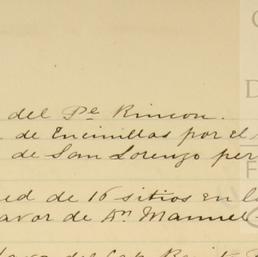 del Pe Rincon.
de Encinillas por el
de San Lorenzo per
ed de 16 sitios en l
avor de Dn Manuel
del Cap. Benit